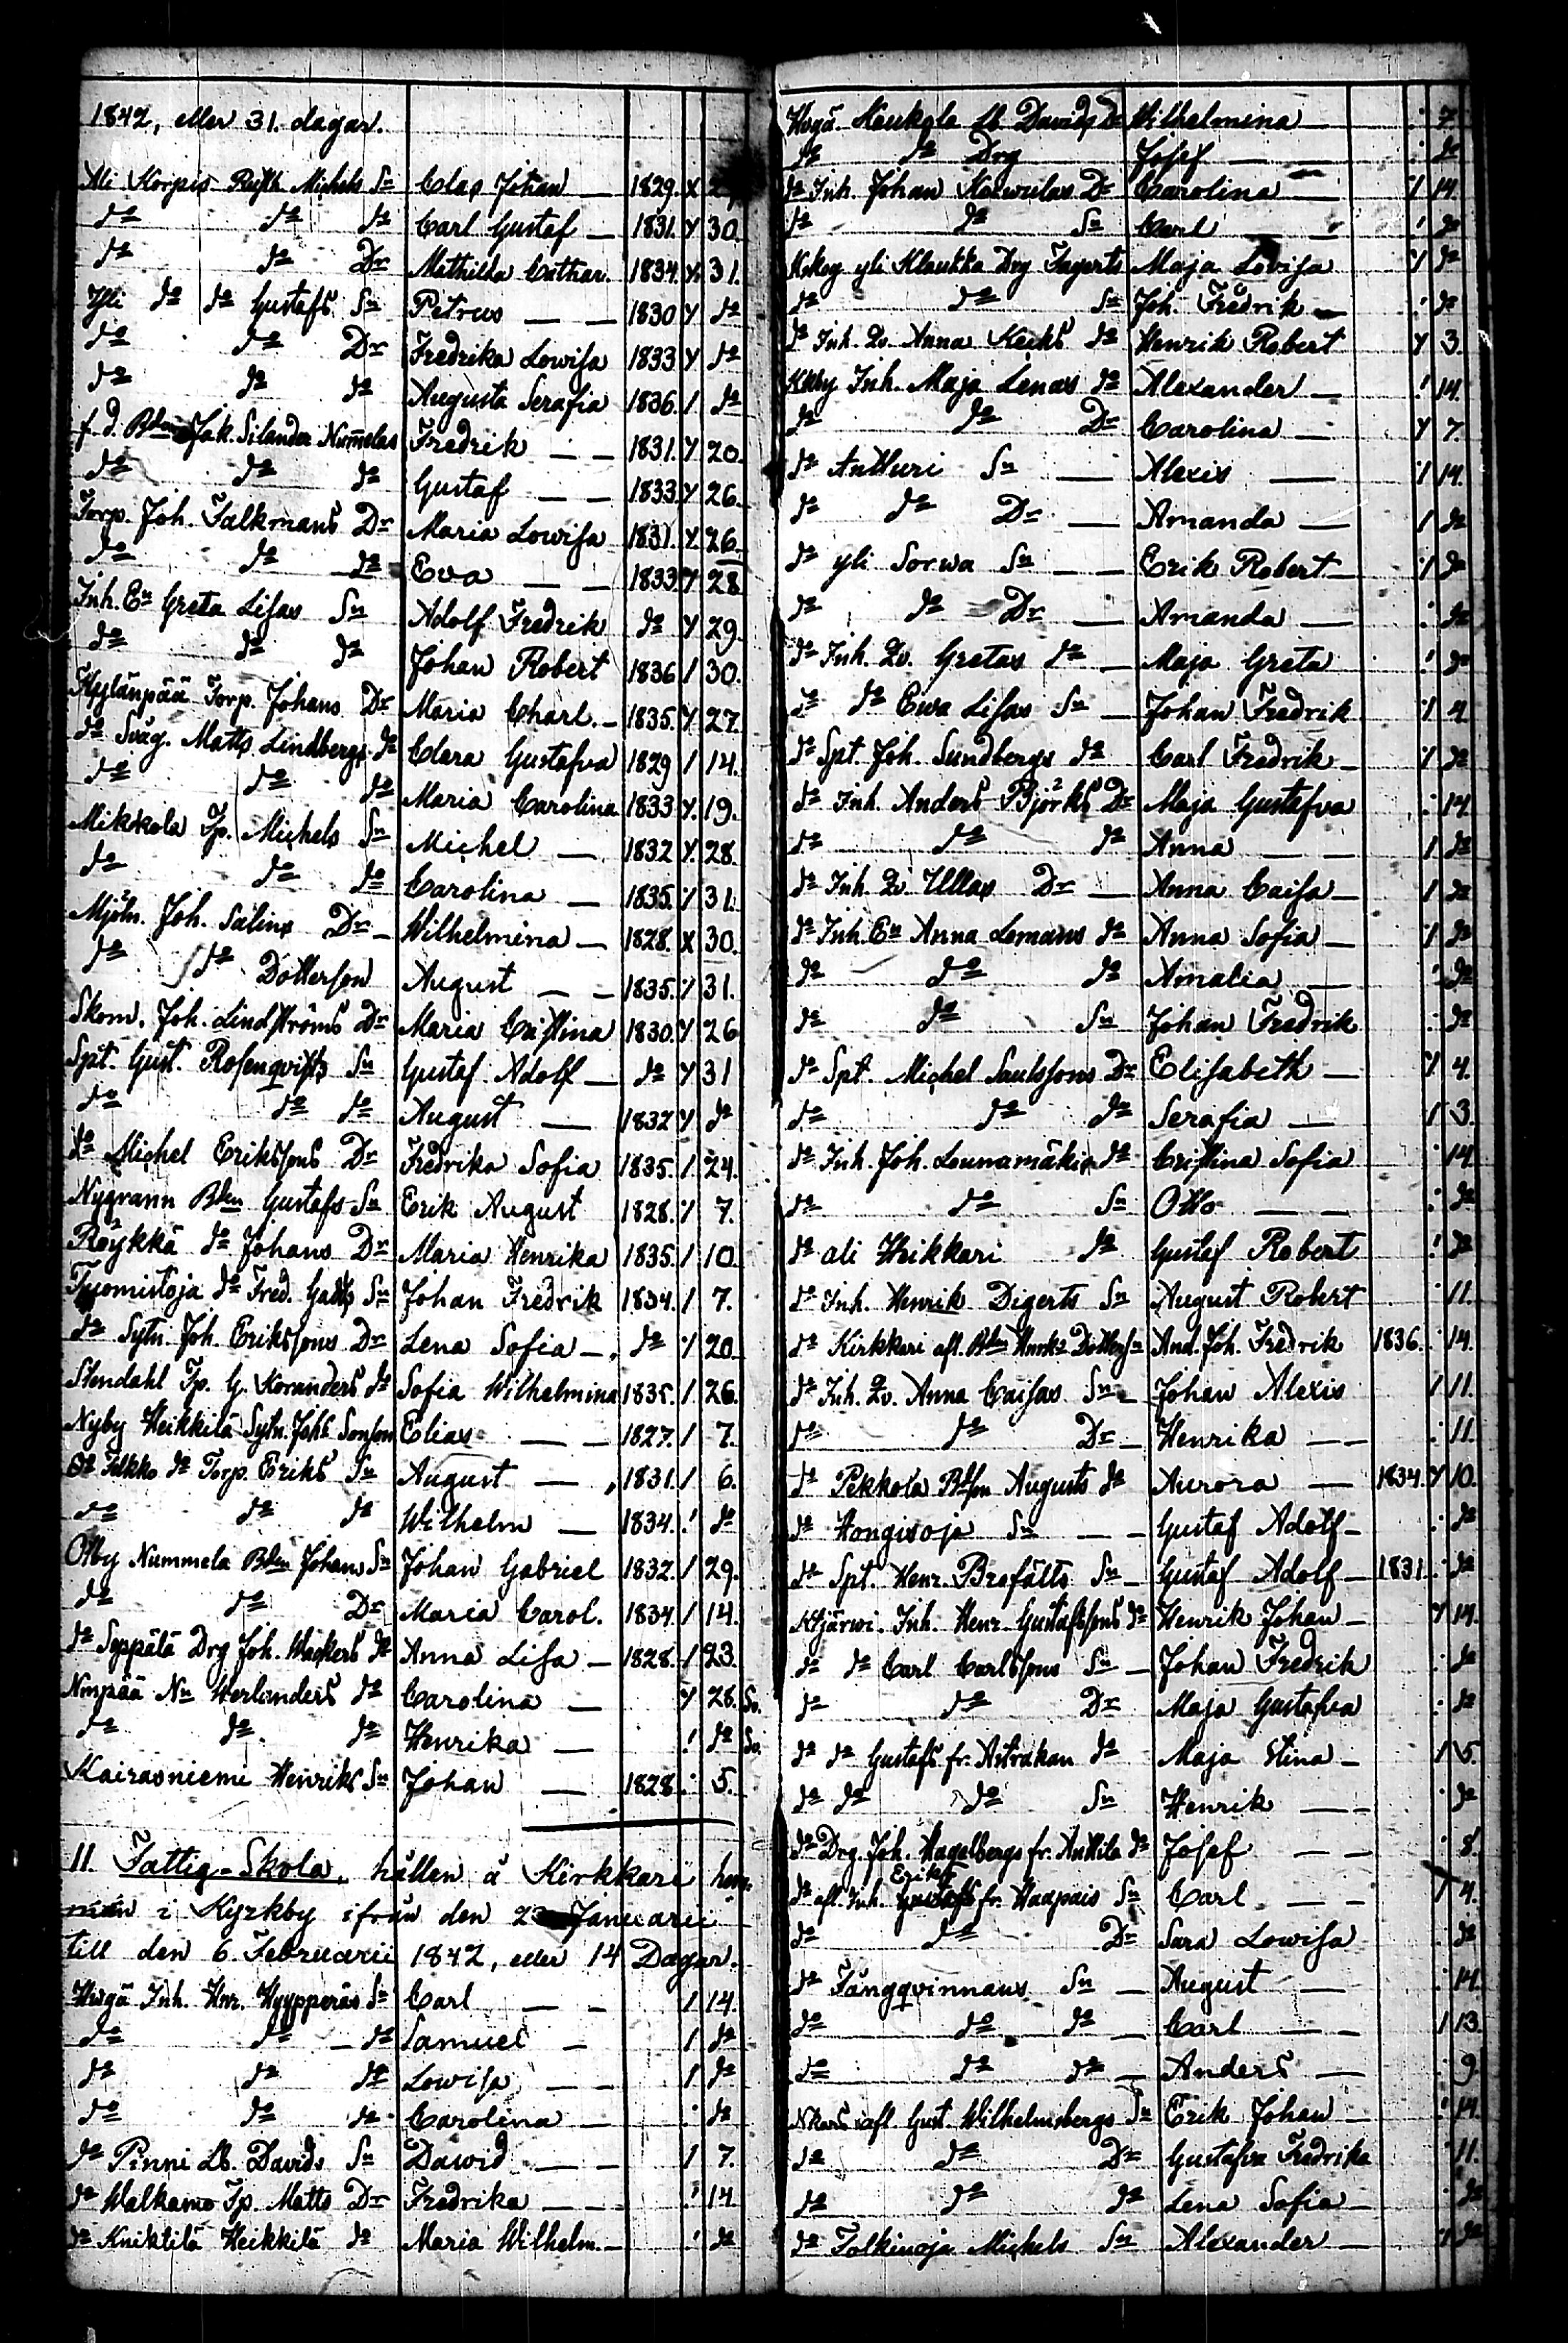 1842, eller 31. dagar.
Ali Korpis Rusth. Michels Sn Clas Johan — 1829. X
do do do Carl Gustaf — 1831. Y 30.
do do Dr Mathilda Cathar. 1834. Y 31.
Yli do do Gustafs Sn Petrus — — 1830 Y do
do do Dr Fredrika Lowisa 1833 Y do
do do do Augusta Serafia 1836. / do
f. d. Bden Jak. Silander Nummelas Fredrik — — 1831. Y 20.
do do do Gustaf — — 1833. Y 26.
Torp. Joh. Falkmans Dr Maria Lowisa 1831. Y. 26.
do do do Eva — — 1833 Y 28
Inh. En Greta Lisas Sn Adolf Fredrik do Y 29.
do do do Johan Robert 1836 / 30.
Kylänpää Torp. Johans Dr Maria Charl. — 1835. Y 27.
do Sväg. Matts Lindbergs do Clara Gustafva 1829 / 14.
do do do Maria Carolina 1833 Y. 19.
Mikkola Tp. Michels Sn Michel — 1832 Y. 28.
do do do Carolina — 1835. / 31.
Mjöln. Joh. Salins Dr — Wilhelmina — 1828. X 30.
do do Dotterson August — — 1835. / 31.
Skom. Joh. Lindströms Dr Maria Cristina 1830. Y 26
Spt. Gust. Rosenqvists Sn Gustaf Adolf — do Y 31
do do do August — 1832 Y do
do Michel Erikssons Dr Fredrika Sofia 1835. / 24.
Nygrann Bden Gustafs Sn Erik August 1828. / 7.
Röykkä do Johans Dr Maria Henrika 1835. / 10.
Tuomistoja do Fred. Sn Johan Fredrik 1834. / 7.
do Sytn. Joh. Erikssons Dr Lena Sofia — do / 20
Stendahl Tp. G. Koranders do Sofia Wilhelmina 1835. / 26.
Nyby Heikkilä Sytn. Johs Sonson Elias — — 1827. / 7.
do Falkko do Torp. Eriks Sn August — 1831. / 6.
do do do Wilhelm — 1834. ! do
Olby Nummela Bden Johans Sn Johan Gabriel 1832. / 29.
do do Dr Maria Carol. 1834. / 14.
do Seppälä Drg Joh. Wackers do Anna Lisa — 1828. / 23.
Numpää Nn Herlanders do Carolina — Y 28. So.
do do do Henrika — ! do So.
Kairasniemi Henriks Sn Johan — 1828 : 5.
11. Fattig-Skola, hållen å Kirkkari hem-
man i Kyrkby ifrån den 23 Januarii
till den 6. Februarii 1842, eller 14 Dagar.
Hugä Inh. Hnr. Hyypperäs Sn Carl — — / 14.
do do do Samuel — / do
do do do Lowisa — — / do
do do do Carolina — : do
do Pinni Lb. Davids Sn Dawid — — / 7.
do Walkamo Tp. Matts Dr Fredrika — — ! 14
do Kniktilä Heikkilä do Maria Wilhelm. — ! do
Hugä Kaukola Lb. Davids Dr Wilhelmina — : 7.
do do Drg Josef — — : do
do Inh. Johan Dr Carolina — / 14.
do do Sn Carl — — ! do
yli Klaukka Drg Fagerts Maja Lovisa / do
do do Sn Joh. Fredrik — ! do
do Inh. Qv. Anna do Henrik Robert Y 3.
Kkby Inh. Maja Lenas do Alexander — ! 14.
do do Dr Carolina — Y 7.
do Antturi Sn — Alexis — / 14.
do do Dr — Amanda — / do
do yli Sorwa Sn — — Erik Robert — / do
do do Dr — Amanda — : do
do Inh. Qv. Gretas do — Maja Greta ! do
do do Ewa Lisas Sn — Johan Fredrik / 4.
do Spt. Joh. Sundbergs do Carl Fredrik — / do
do Inh. Anders Björks Dr Maja Gustafva : 14.
do do do Anna — — / do
do Inh. Qv. Ullas Dr — Anna Caisa — / do
do Inh. En Anna Lemans do Anna Sofia — / do
do do do Amalia — ! do
do do Sn Johan Fredrik : do
do Spt. Michel Saulssons Dr Elisabeth — Y 4.
do do do Serafia — / 3.
do Inh. Joh. Lounamäkis do Cristina Sofia : 14.
do do Sn Otto — — : do
do ali Heikkari do Gustaf Robert ! do
do Inh. Henrik Digerts Sn August Robert : 11.
do Kirkkari afl. Bden Dotterson And. Joh. Fredrik 1836. : 14.
do Inh. Qv. Anna Caisas Sn — Johan Alexis / 11.
do do Dr — Henrika — — : 11.
do Pekkola Bdson Augusts do Aurora — 1834. Y 10.
do Hongisoja Sn — — Gustaf Adolf — : do
do Spt. Henr. Brofälts Sn — Gustaf Adolf — 1831. : do
Ktjärwi. Inh. Henr. Gustafssons do Henrik Johan — Y 14.
do do Carl Carlssons Sn — Johan Fredrik : do
do do Dr Maja Gustafva : do
do do Gustafs fr. Astrakan do Maja Stina — / 5.
do do do Sn Henrik — — : do
do Drg. Joh. Hagelbergs fr. Anttila do Josef — — : 8.
Eriks
do afl. Inh. Gustafs fr. Haapais Sn Carl — — / 4.
do do Dr Sara Lowisa do
do Fångqvinnans Sn — August — : 14.
do do do — Carl — — / 13.
do do do — Anders — : 9.
Nkars afl. Gust. Wilhelmsbergs Sn Erik Johan — ! 14.
do do Dr Gustafva Fredrika : 11.
do do do Lena Sofia — : do
do Folkinoja Michels Sn Alexander — / do